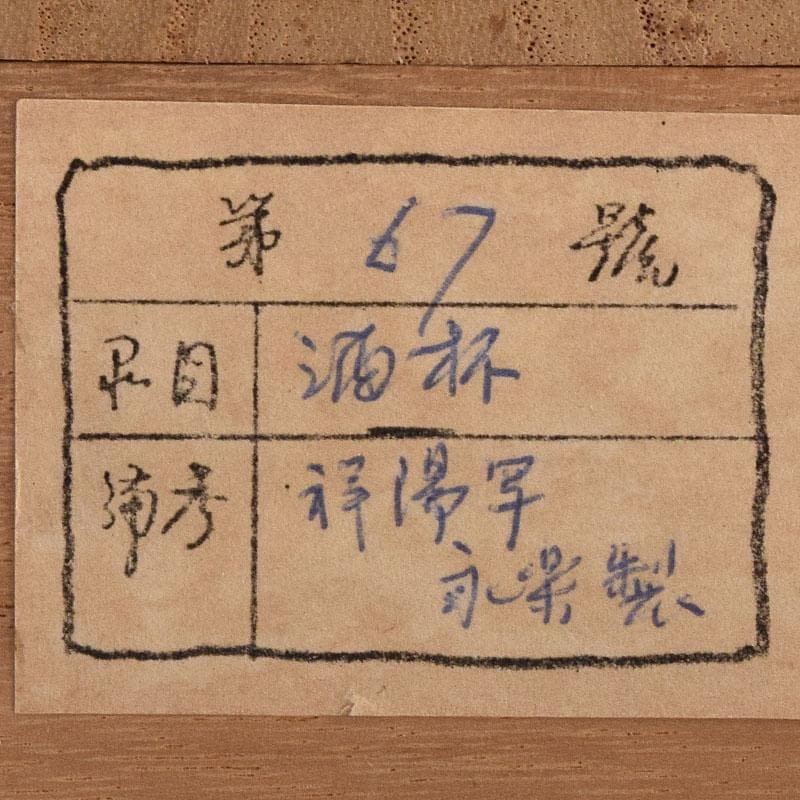 第 67 號
品目 酒杯
備考 祥 写
永楽製